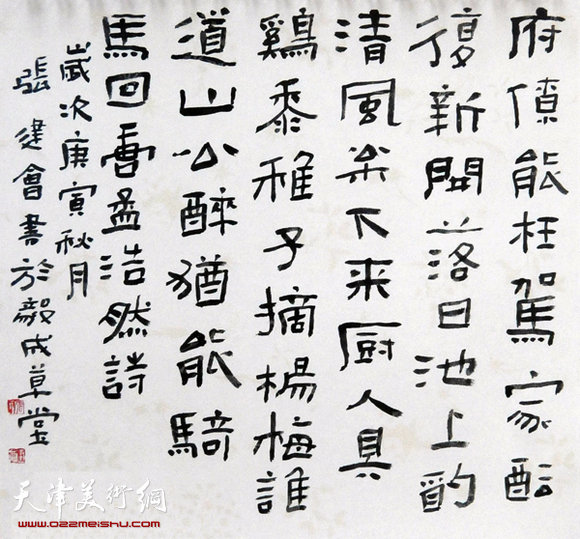 府僚能枉駕家酝
復新開落日池上酌
清風枀下来厨人具
鷄黍稚子摘楊梅誰
道山公醉猶能騎
馬回書孟浩然詩
歲次庚寅秋月
張建會書於毅成草堂
天津美術網
www.022meishu.com